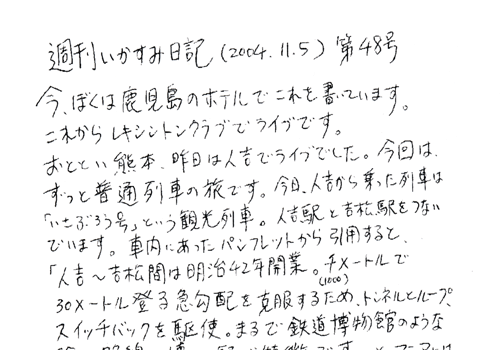 週刊いかすみ日記 (2004.11.5) 第48号
今、ぼくは鹿児島のホテルでこれを書いています。
これからレキシントンクラブでライブです。
おととい熊本、昨日は人吉でライブでした。今回は、
ずっと普通列車の旅です。今日、人吉から乗った列車は
「いさぶろう号」という観光列車。人吉駅と吉松駅をつない
でいます。車内にあったパンフレットから引用すると、
「人吉〜吉松間は明治42年開業。千メートルで
(1000)
30メートル登る急勾配を克服するため、トンネルとループ、
スイッチバックを駆使。まるで鉄道博物館のような